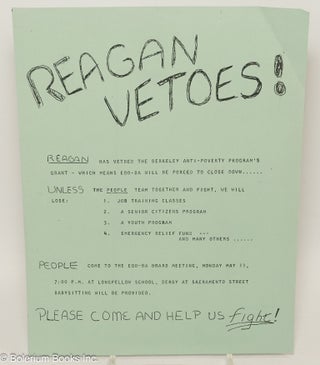 REAGAN
VETOES!
REAGAN HAS VETOED THE BERKELEY ANTI-POVERTY PROGRAM'S
GRANT - WHICH MEANS EOO-BA WILL BE FORCED TO CLOSE DOWN......
UNLESS THE PEOPLE TEAM TOGETHER AND FIGHT, WE WILL
LOSE: 1. JOB TRAINING CLASSES
2. A SENIOR CITIZENS PROGRAM
3. A YOUTH PROGRAM
4. EMERGENCY RELIEF FUND ---
AND MANY OTHERS ......
PEOPLE COME TO THE EOO-BA BOARD MEETING, MONDAY MAY 11,
7:00 P.M. AT LONGFELLOW SCHOOL, DERBY AT SACRAMENTO STREET
BABYSITTING WILL BE PROVIDED.
PLEASE COME AND HELP US fight!
© Bolerium Books Inc.